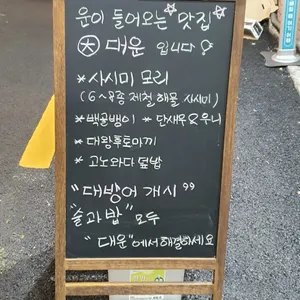 운이 들어오는 맛집
大 대운 입니다?
* 사시미 모리
(6~8종 제철 해물 사시미)
* 백골뱅이 * 단새우&우니
* 대왕후토마끼
* 고노와다 덮밥
"대방어 개시"
"술과 밥" 모두
"대운"에서 해결하세요